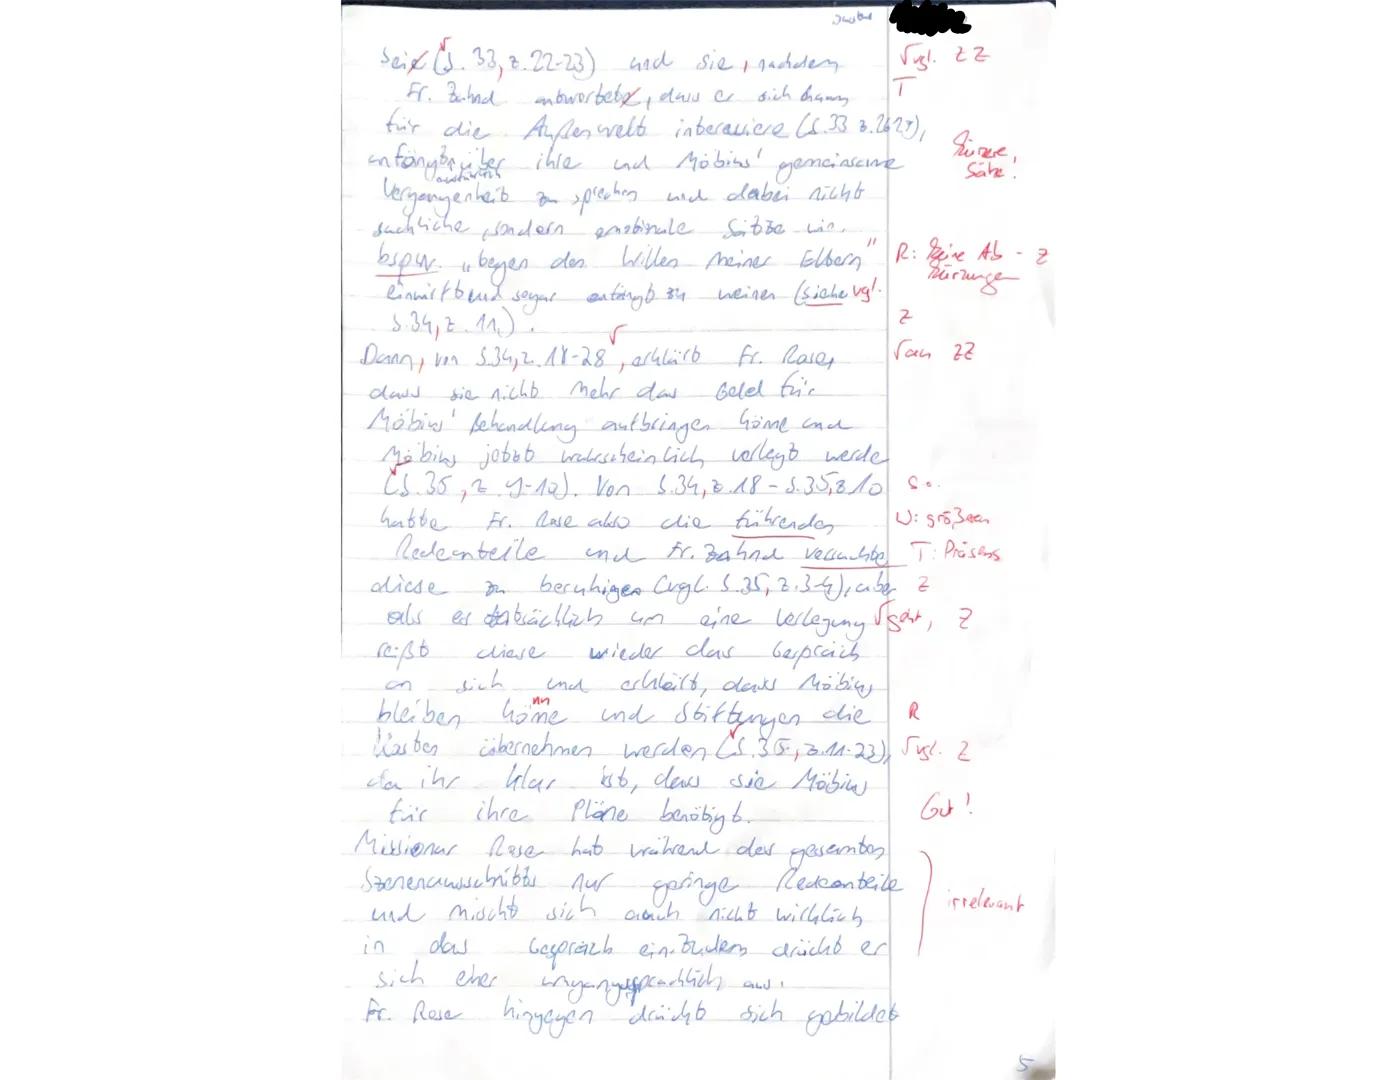 sei (S. 33, z. 22-23) und sie, nachdem √vgl. ZZ
Fr. Zahnd antwortet, dass er sich kaum T
für die Außenwelt interessiere (S. 33 z. 26 27),
anfängt, über ihre und Möbius' gemeinsame Kürzere
ausführlich Sätze!
Vergangenheit zu sprechen und dabei nicht
sachliche, sondern emotionale Sätze wie
bspw. „Gegen den Willen meiner Eltern" R: Keine Ab- Z
einwirft und sogar anfängt zu weinen (siehe vgl. kürzungen
S. 34, z. 11.). Z
Dann, von S.34, z. 18-28, erklärt Fr. Rose, √an ZZ
dass sie nicht mehr das Geld für
Möbius' Behandlung aufbringen könne und
Möbius jetzt wahrscheinlich verlegt werde
(S. 35, z. 9-10). Von S.34, z. 18 - S.35, z 10 s.o.
hatte Fr. Rose also die führenden W: größeren
Redeanteile und Fr. Zahnd versuchte T: Präsens
diese zu beruhigen (vgl. S. 35, z. 3-4), aber Z
als es tatsächlich um eine Verlegung √geht, Z
reißt diese wieder das Gespräch
an sich und erklärt, dass Möbius
nn
bleiben köme und Stiftungen die R
Kosten übernehmen werden (S. 35, z. 11-23), √vgl. Z
da ihr klar ist, dass sie Möbius
für ihre Pläne benötigt. Gut!
Missionar Rose hat während des gesamten
Szenenausschnitts nur geringe Redeanteile
und mischt sich auch nicht wirklich irrelevant
in das Gespräch ein. Zudem drückt er
sich eher umgangssprachlich aus.
Fr. Rose hingegen drückt sich gebildet
5